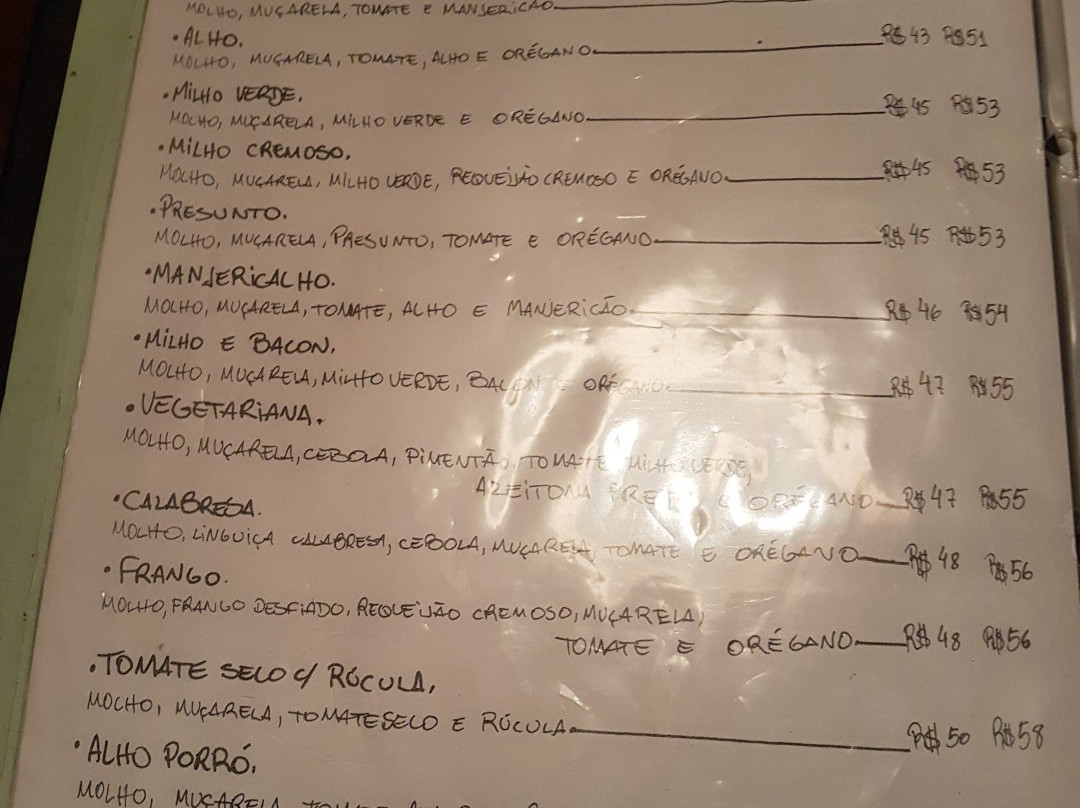 MOLHO, MUÇARELA, TOMATE E MANJERICÃO
• ALHO. R$ 43 R$51
MOLHO, MUÇARELA, TOMATE, ALHO E ORÉGANO
• MILHO VERDE.
MOLHO, MUÇARELA, MILHO VERDE E ORÉGANO R$ 45 R$53
• MILHO CREMOSO.
MOLHO, MUÇARELA, MILHO VERDE, REQUEIJÃO CREMOSO E ORÉGANO R$45 R$53
• PRESUNTO.
MOLHO, MUÇARELA, PRESUNTO, TOMATE E ORÉGANO R$ 45 R$53
• MANJERICALHO.
MOLHO, MUÇARELA, TOMATE, ALHO E MANJERICÃO R$ 46 R$54
• MILHO E BACON.
MOLHO, MUÇARELA, MILHO VERDE, BACON E ORÉGANO R$47 R$55
• VEGETARIANA.
MOLHO, MUÇARELA, CEBOLA, PIMENTÃO, TOMATE, MILHO VERDE,
AZEITONA PRETA E ORÉGANO R$47 R$55
• CALABRESA.
MOLHO, LINGUIÇA CALABRESA, CEBOLA, MUÇARELA, TOMATE E ORÉGANO R$ 48 R$56
• FRANGO.
MOLHO, FRANGO DESFIADO, REQUEIJÃO CREMOSO, MUÇARELA,
TOMATE E ORÉGANO R$ 48 R$56
• TOMATE SELO C/ RÚCULA.
MOLHO, MUÇARELA, TOMATE SELO E RÚCULA R$ 50 R$58
• ALHO PORRÓ.
MOLHO, MUÇARELA, TOMATE